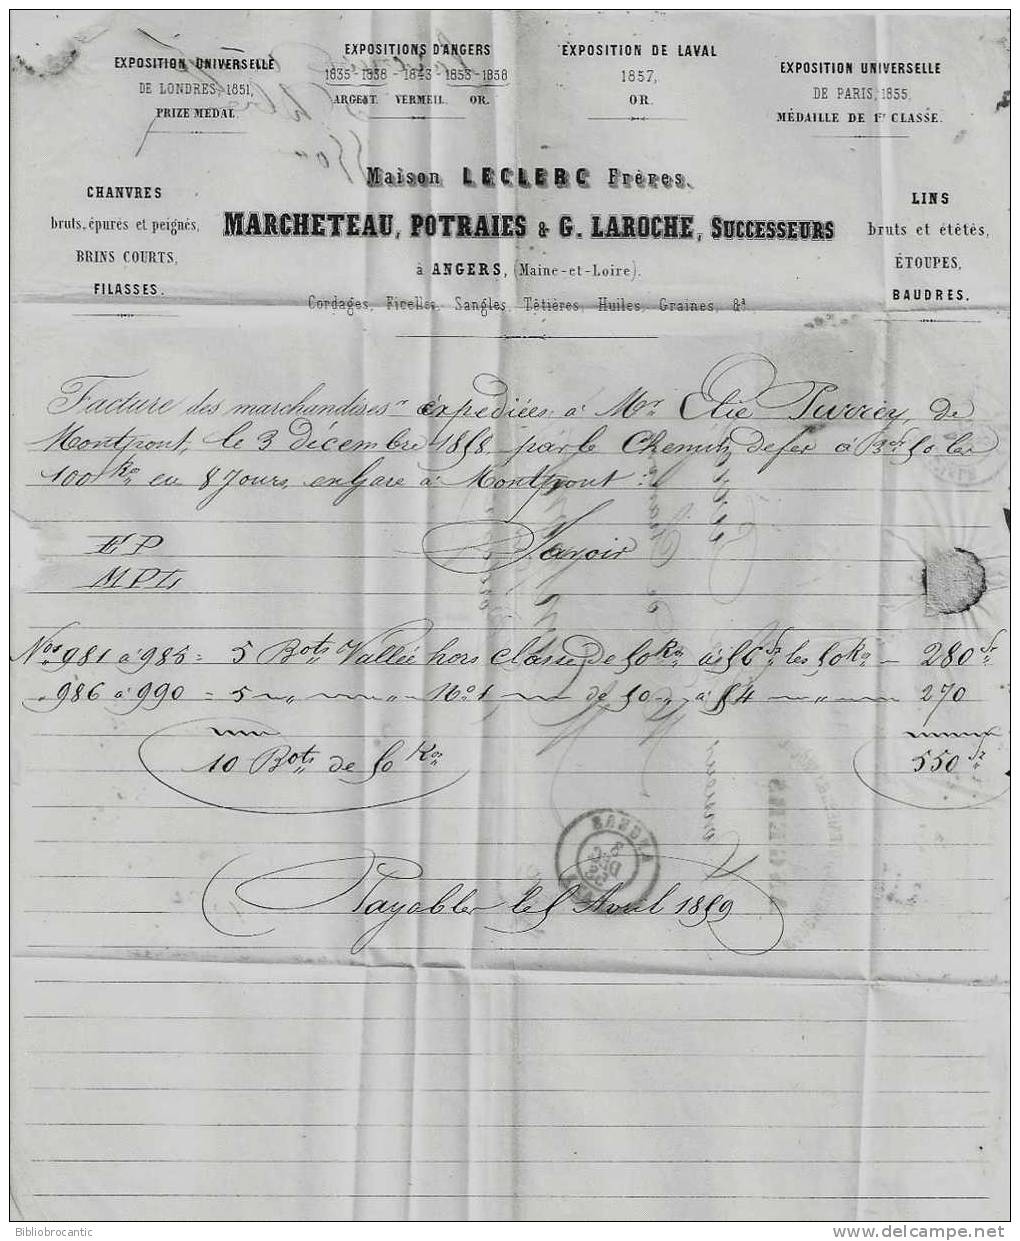 EXPOSITION UNIVERSELLE
DE LONDRES, 1851,
PRIZE MEDAL.
EXPOSITIONS D'ANGERS
1835-1838-1843-1853-1858
ARGENT. VERMEIL. OR.
EXPOSITION DE LAVAL
1857,
OR.
EXPOSITION UNIVERSELLE
DE PARIS, 1855,
MÉDAILLE DE 1re CLASSE.
Maison LECLERC Frères.
MARCHETEAU, POTRAIES & G. LAROCHE, SUCCESSEURS
à ANGERS, (Maine-et-Loire).
Cordages, Ficelles, Sangles, Têtières, Huiles, Graines, &a.
CHANVRES
bruts, épurés et peignés,
BRINS COURTS,
FILASSES.
LINS
bruts et étêtés,
ÉTOUPES,
BAUDRES.
Facture des marchandises expédiées à Mr Elie de
Montpont, le 3 décembre 1858 par le Chemin de fer à 50 les
100 Kos en 8 Jours, en Gare à Montpont :
Savoir
EP
MPT
Nos 981 à 985 = 5 Bots Vallée hors classe de 50 Kos à 56 fr les 50 Ko — 280 fr
986 à 990 = 5 — " — " No 1 — de 50 " à 54 — " — 270
10 Bots de 50 Kos 550 fr
Payable le 5 Avril 1859
Bibliobrocantic
www.delcampe.net